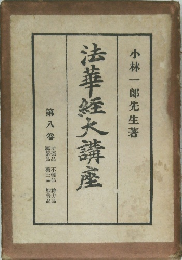 小林一郎先生著
法華經大講座
第八卷